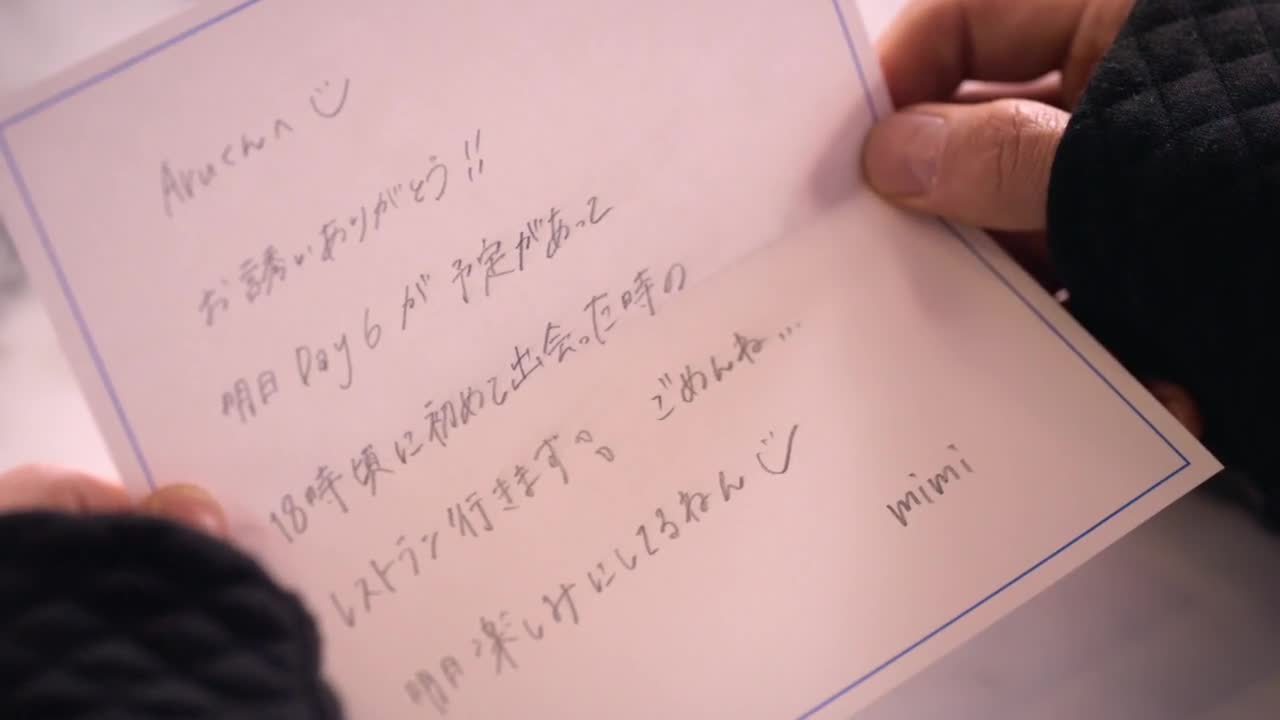 Aruくんへ
お誘いありがとう!!
明日 Day 6 が予定があって
18時頃に初めて出会った時の
レストラン行きます。 ごめんね...
明日楽しみにしてるねん
mimi